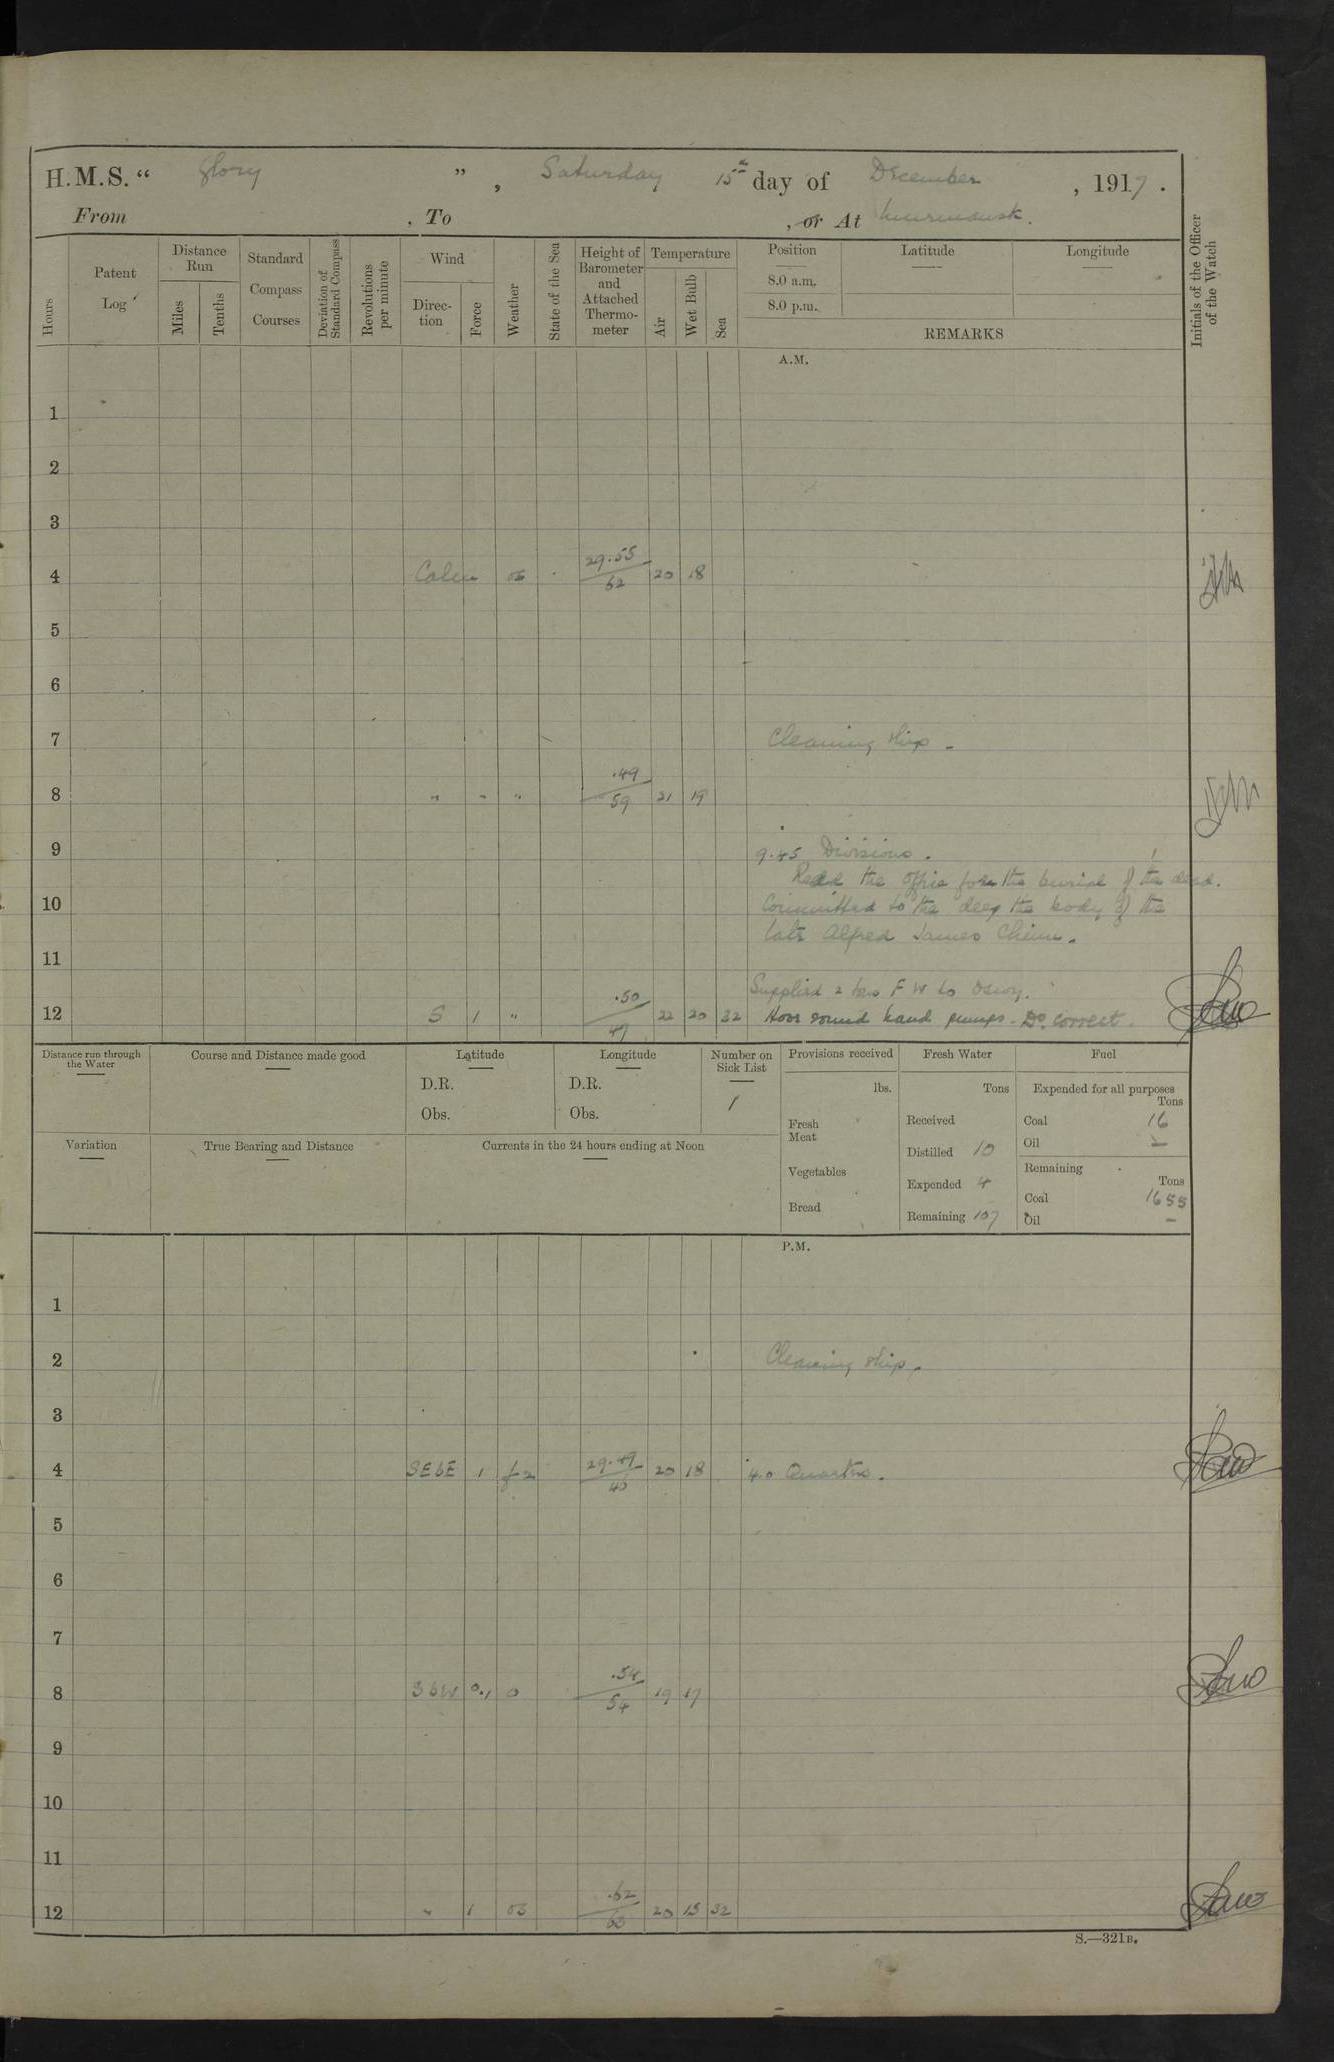 H.M.S. “ Glory ” , Saturday 15th day of December , 1917 .
From , To , or At Murmansk.
Hours
Patent Log
Distance Run
Miles
Tenths
Standard Compass Courses
Deviation of Standard Compass
Revolutions per minute
Wind
Direction
Force
Weather
State of the Sea
Height of Barometer and Attached Thermometer
Temperature
Air
Wet Bulb
Sea
Position
Latitude
Longitude
8.0 a.m.
8.0 p.m.
REMARKS
Initials of the Officer of the Watch
A.M.
1
2
3
4 Calm 29.55 62 20 18
5
6
7 Cleaning ship -
8 " " " .49 59 21 19
9 9.45 Divisions.
Read the office for the burial of the dead.
10 Committed to the deep the body of the
late Alfred James
11
Supplied 2 tons F W to
12 S 1 " .50 22 20 32 hand pumps - Do. correct.
Distance run through the Water
Course and Distance made good
Latitude
D.R.
Obs.
Longitude
D.R.
Obs.
Number on Sick List
1
Variation
True Bearing and Distance
Currents in the 24 hours ending at Noon
Provisions received
lbs.
Fresh Meat
Vegetables
Bread
Fresh Water
Tons
Received
Distilled 10
Expended 4
Remaining 107
Fuel
Expended for all purposes
Tons
Coal 16
Oil —
Remaining
Tons
Coal 1655
Oil —
P.M.
1
2 Cleaning ship.
3
4 SEbE 1 29.49 20 18 4.0 Quarters.
5
6
7
8 SbW 0.1 o .54 54 19 17
9
10
11
12 " 1 .62 20 32
S.—321B.